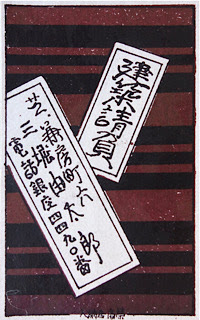 建築請負
芝兼房町六
三堀由太郎
電話銀座四四九〇番